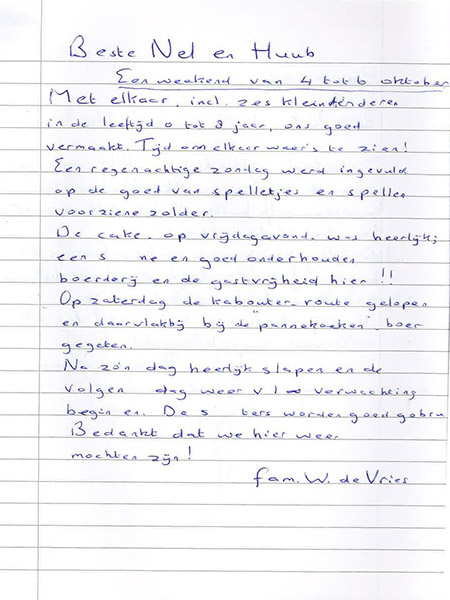 Beste Nel en Huub
Een weekend van 4 tot 6 oktober
Met elkaar, incl. zes kleinkinderen
in de leeftijd 0 tot 8 jaar, ons goed
vermaakt. Tijd om elkaar weer's te zien!
Een regenachtige zondag werd ingevuld
op de goed van spelletjes en spellen
voorziene zolder.
De cake, op vrijdagavond was heerlijk;
een s ne en goed onderhouden
boerderij en de gastvrijheid hier !!
Op zaterdag de kabouter-route gelopen
en daarvlakbij bij de "pannekoeken" boer
gegeten.
Na zo'n dag heerlijk slapen en de
volgen dag weer verwachting
begin en. De s ters worden goed gebru
Bedankt dat we hier weer
mochten zijn!
fam. W. de Vries